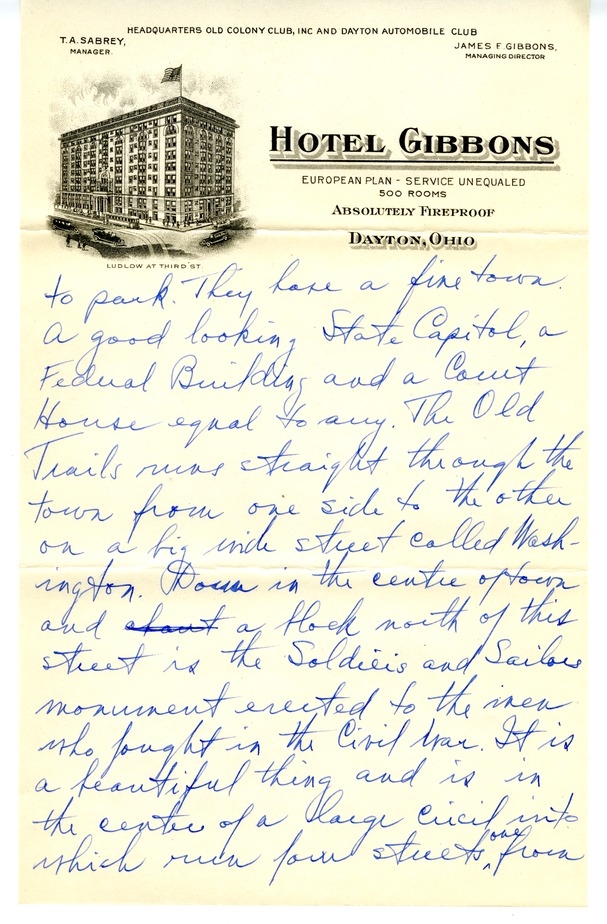 HEADQUARTERS OLD COLONY CLUB, INC AND DAYTON AUTOMOBILE CLUB
T. A. SABREY,
MANAGER.
JAMES F. GIBBONS,
MANAGING DIRECTOR
HOTEL GIBBONS
EUROPEAN PLAN - SERVICE UNEQUALED
500 ROOMS
ABSOLUTELY FIREPROOF
DAYTON, OHIO
LUDLOW AT THIRD ST.
to park. They have a fine town.
A good looking State Capitol, a
Federal Building and a Court
House equal to any. The Old
Trails runs straight through the
town from one side to the other
on a big wide street called Wash-
ington. Down in the centre of town
and about a block north of this
street is the Soldiers and Sailors
monument erected to the men
who fought in the Civil War. It is
a beautiful thing and is in
the centre of a large circil into
which run four streets, one from